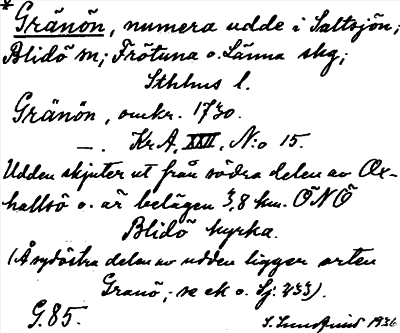 * Gränön, numera udde i Saltsjön;
Blidö sn; Frötuna o. Länna skg;
Sthlms l.
Gränön, omkr. 1730.
—. KrA, XXII, N:o 15.
Udden skjuter ut från södra delen av Ox-
hallsö o. är belägen 3,8 km. ÖNÖ
Blidö kyrka.
(Å sydöstra delen av udden ligger orten
Granö, - se ek o. Sj: 233).
G.85.
1936